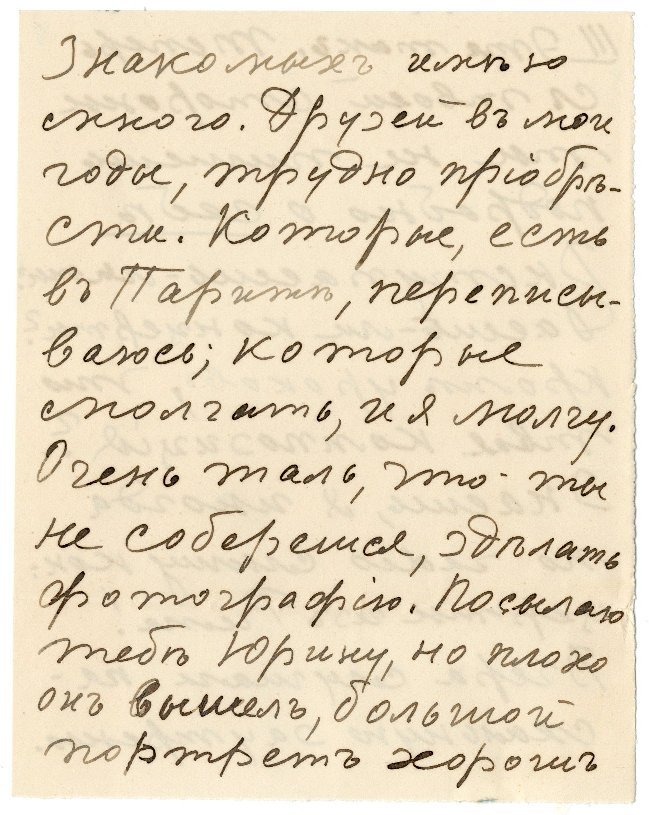 Знакомыхъ имѣю
много. Друзей въ мои
годы, трудно пріобрѣ-
сти. Которые, есть
въ Парижѣ, переписы-
ваюсь; которые
молчатъ, и я молчу.
Очень жаль, что ты
не соберешся, здѣлать
фотографію. Посылаю
тебѣ Юрину, но плохо
онъ вышелъ, большой
портретъ хорошъ